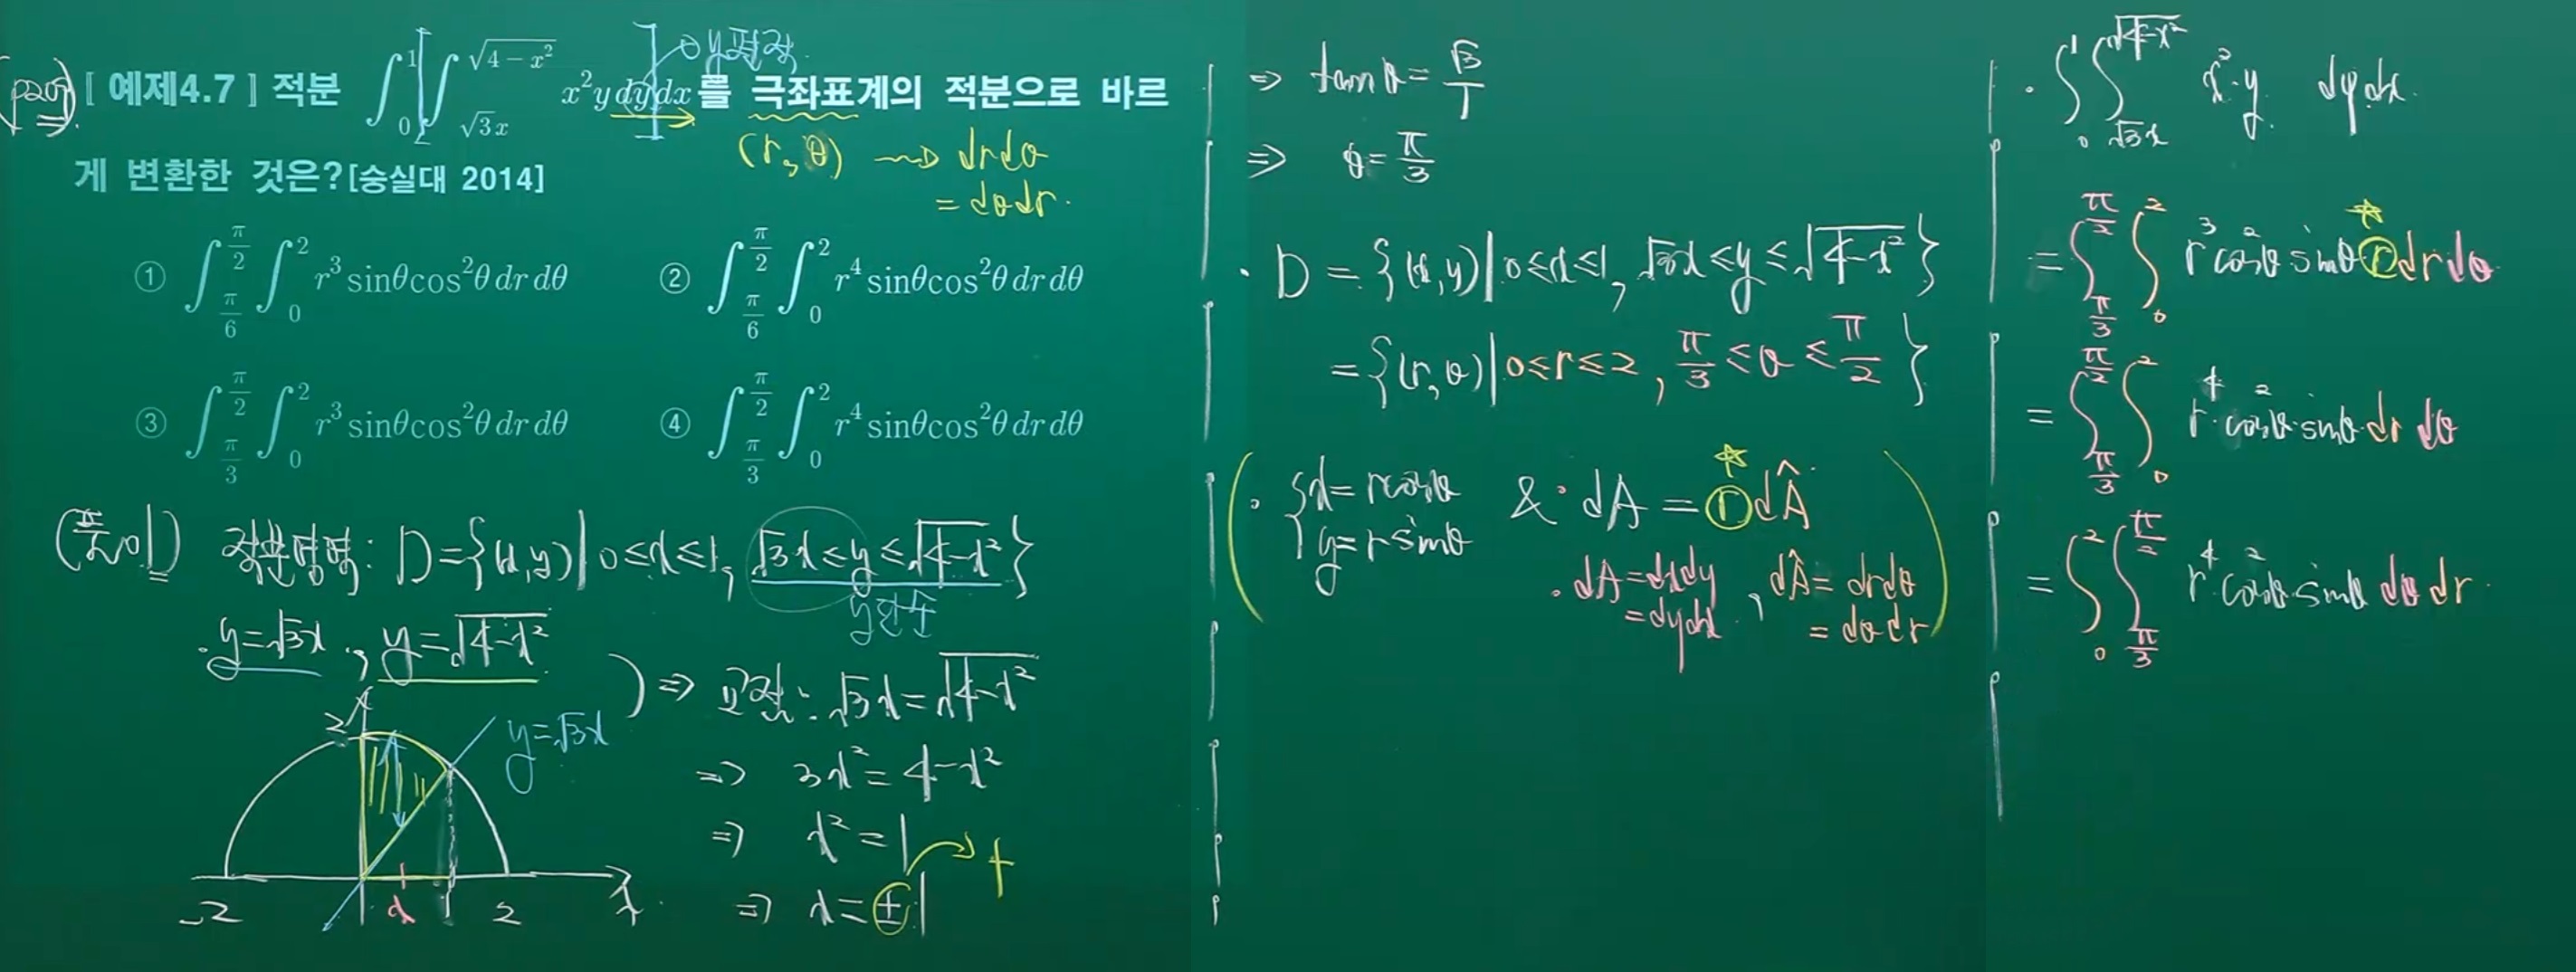 (p209) [ 예제4.7 ] 적분 ∫₀¹ ∫_{√3x}^{√(4-x²)} x²y dy dx 를 극좌표계의 적분으로 바르
y적분
게 변환한 것은?[숭실대 2014]
(r, θ) ⇝ drdθ
= dθdr.
① ∫_{π/6}^{π/2} ∫₀² r³ sinθcos²θ dr dθ
② ∫_{π/6}^{π/2} ∫₀² r⁴ sinθcos²θ dr dθ
③ ∫_{π/3}^{π/2} ∫₀² r³ sinθcos²θ dr dθ
④ ∫_{π/3}^{π/2} ∫₀² r⁴ sinθcos²θ dr dθ
(풀이) 적분영역: D={(x,y)|0≤x≤1, √3x≤y≤√(4-x²)}
· y=√3x, y=√(4-x²)
) ⇒ 교점: √3x=√(4-x²)
⇒ 3x²=4-x²
⇒ x²=1
⇒ x=±1 → +
y=√3x
2
-2 x 1 2 x
⇒ tanθ=√3/1
⇒ θ=π/3
· D={(x,y)|0≤x≤1, √3x≤y≤√(4-x²)}
={(r,θ)|0≤r≤2, π/3≤θ≤π/2}
( · { x=rcosθ & · dA=ⓡdÂ )
y=rsinθ
· dA=dxdy , dÂ=drdθ
=dydx. =dθdr
· ∫₀¹ ∫_{√3x}^{√(4-x²)} x²·y dydx.
= ∫_{π/3}^{π/2} ∫₀² r³cos²θ sinθ ⓡ dr dθ
= ∫_{π/3}^{π/2} ∫₀² r⁴·cos²θ·sinθ·dr dθ
= ∫₀² ∫_{π/3}^{π/2} r⁴cos²θ·sinθ dθ dr.